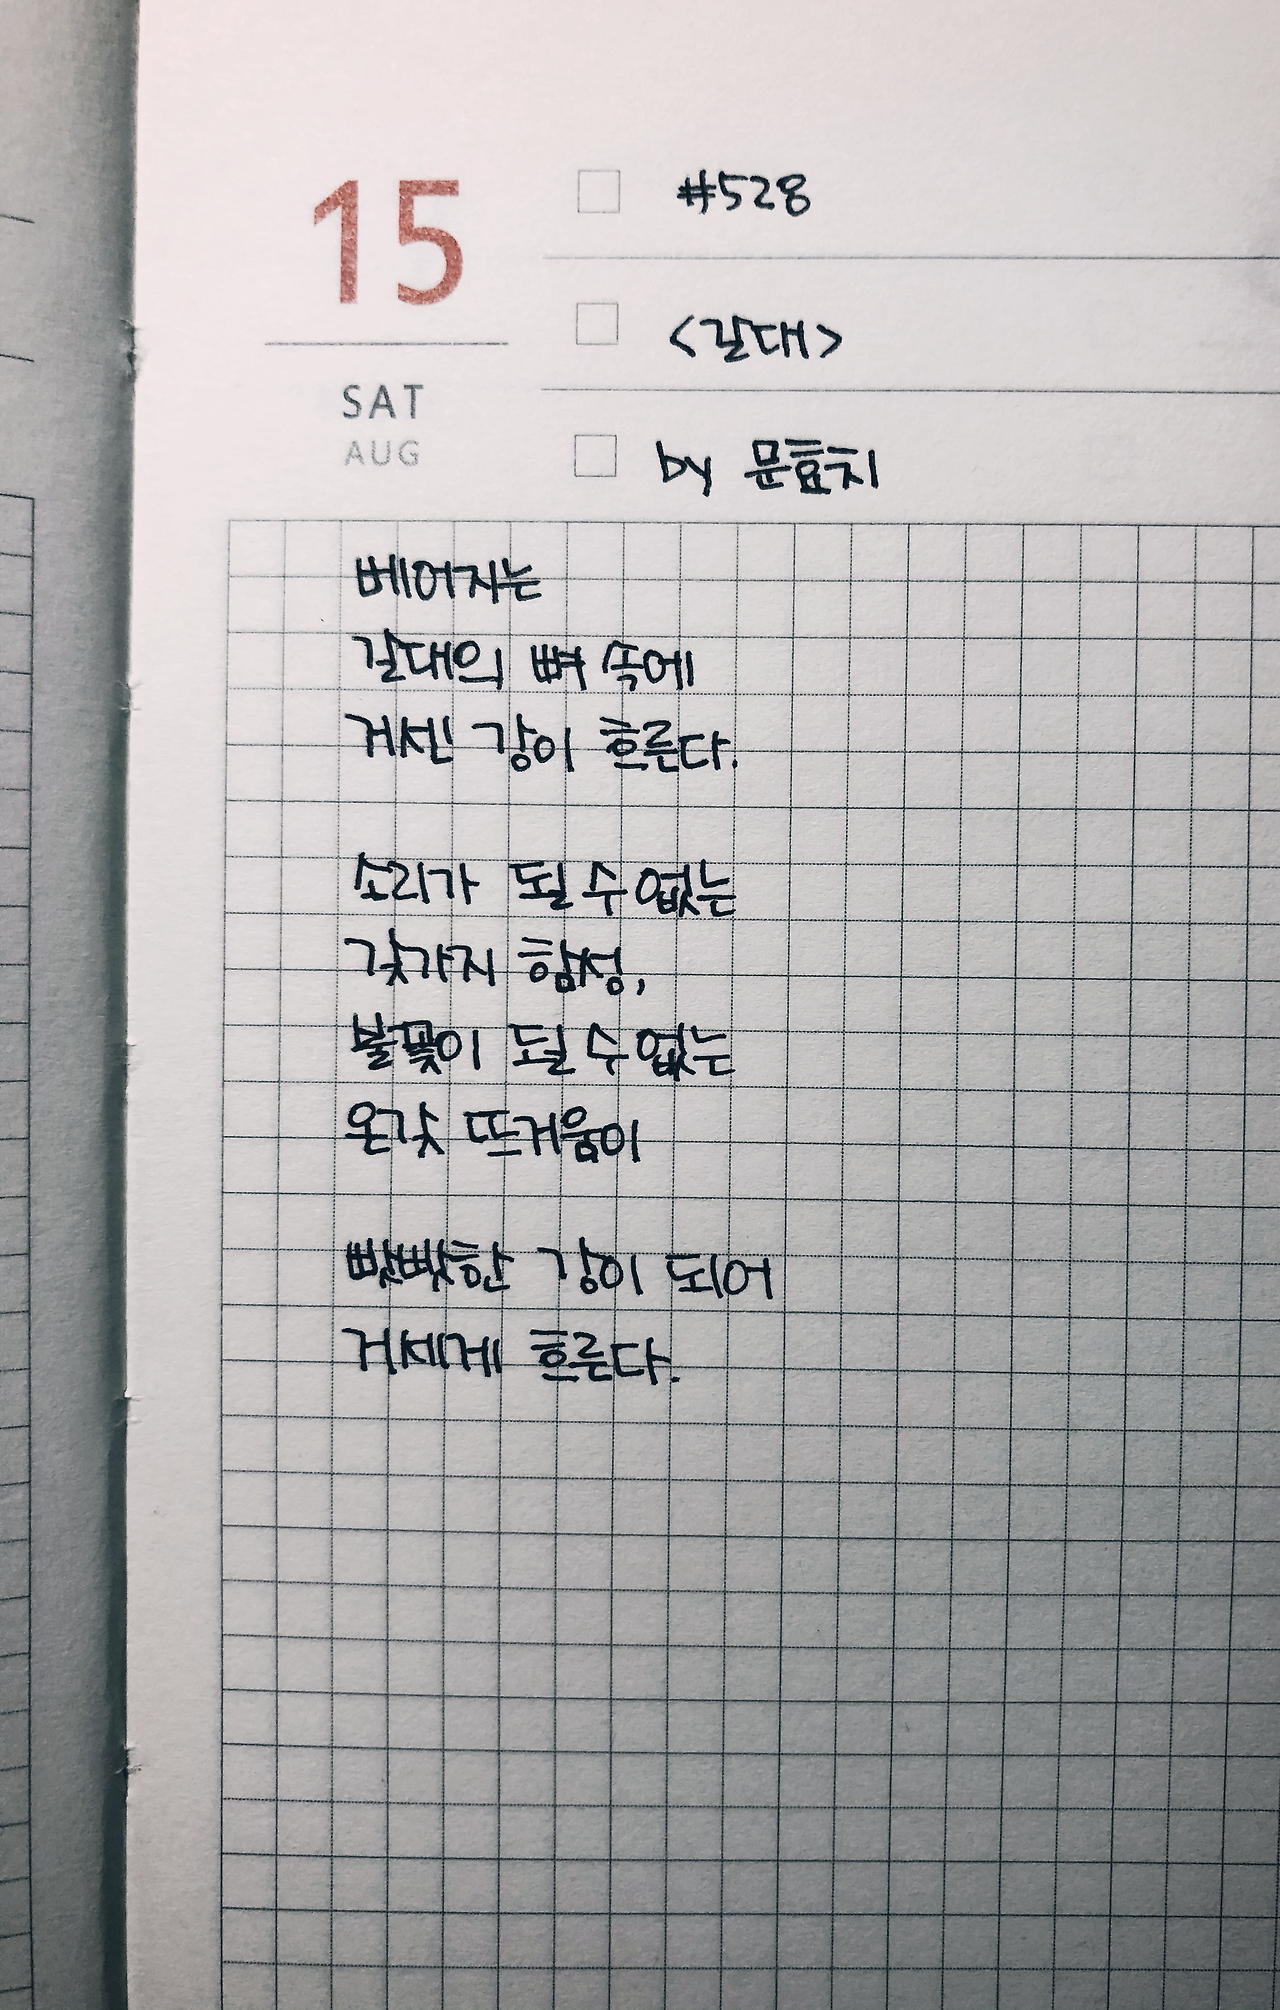 15
SAT
AUG
#528
<갈대>
by 문효치
베어지는
갈대의 뼈 속에
거센 강이 흐른다.
소리가 될 수 없는
갖가지 함성,
불꽃이 될 수 없는
온갖 뜨거움이
빳빳한 강이 되어
거세게 흐른다.